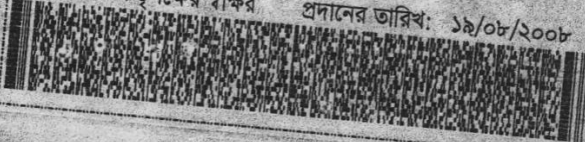 প্রদানের তারিখ: ১৯/০৮/২০০৮